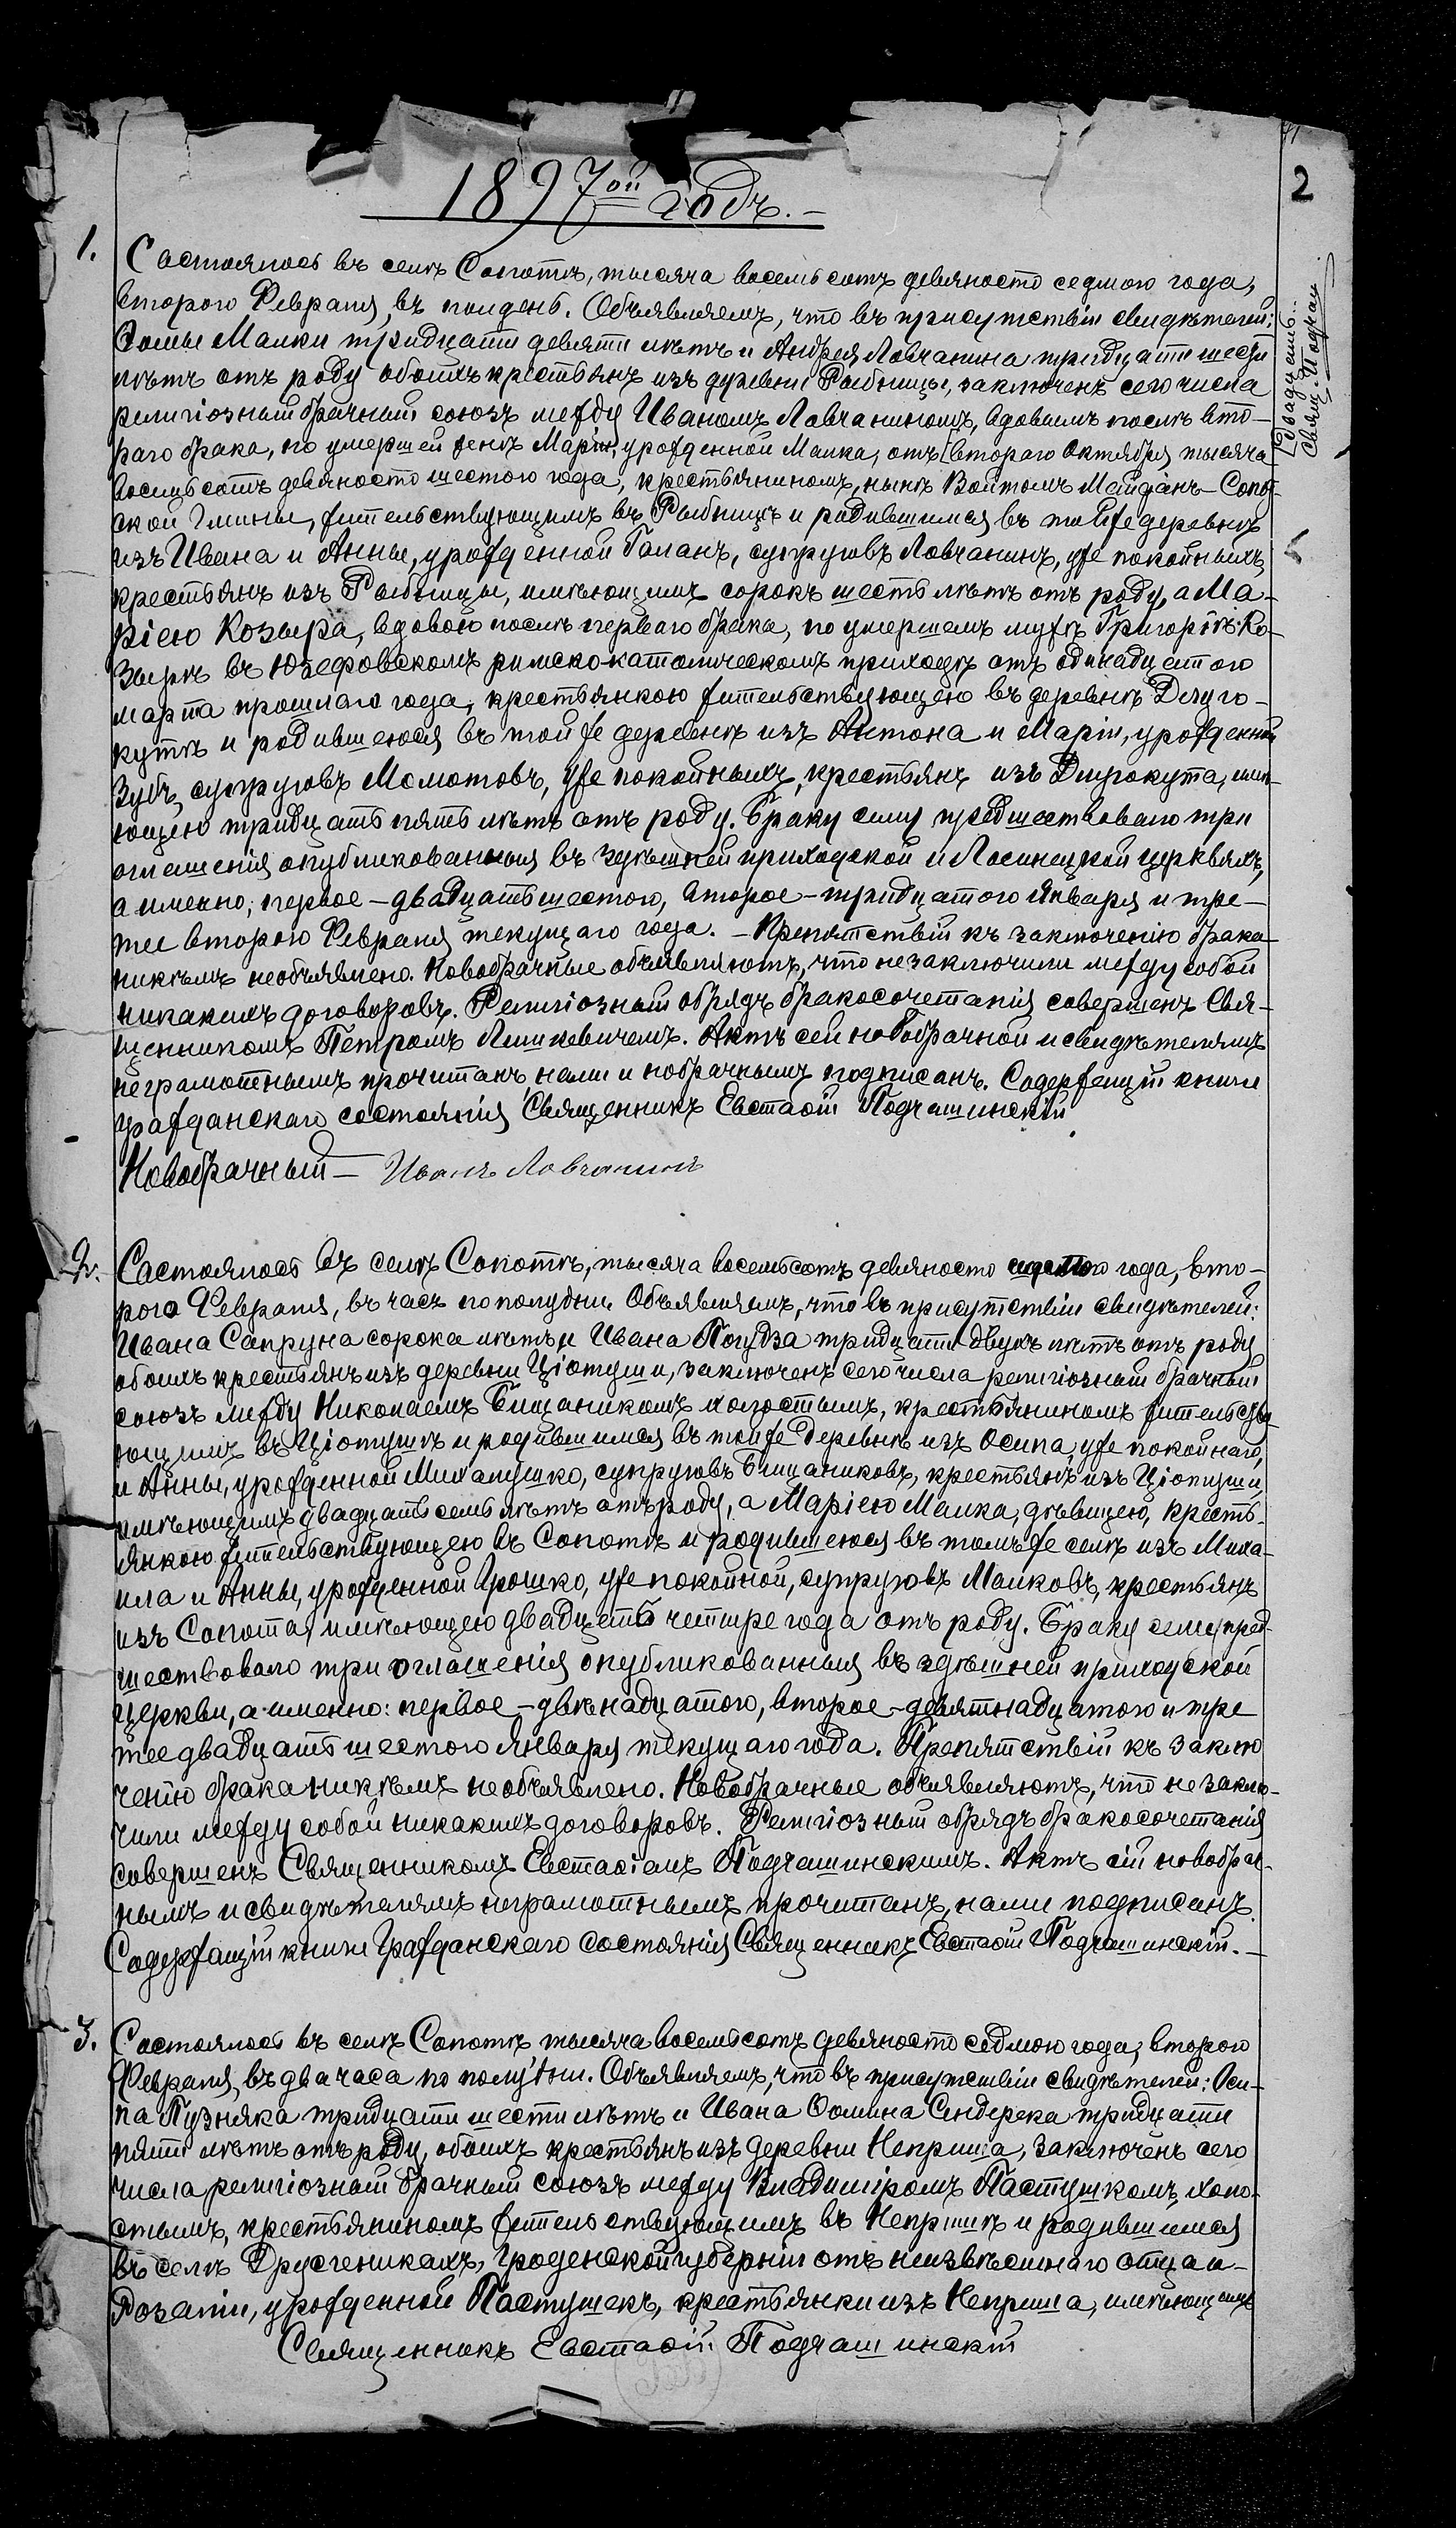 2
1897ой годъ.
[двадцать
Свящ. Подчаш
1.
Состоялось въ селѣ Сопотѣ, тысяча восемьсотъ девяносто седмого года,
второго Февраля, въ полдень. Объявляемъ, что въ присутствіи свидѣтелей:
Ѳомы Малки тридцати девяти лѣтъ и Андрея Ловчанина тридцати шести
лѣтъ отъ роду обоихъ крестьянъ изъ деревни Рыбницы, заключенъ сего числа
религіозный брачный союзъ между Иваномъ Ловчаниномъ, вдовымъ послѣ вто-
раго брака, по умершей женѣ Маріи, урожденной Малка, отъ [втораго Октября тысяча
восемьсотъ девяносто шестого года, крестьяниномъ, нынѣ Войтомъ Майданъ-Сопот-
ской Гмины, жительствующимъ въ Рыбницѣ и родившимся въ той же деревнѣ
изъ Ивана и Анны, урожденной Галанъ, супруговъ Ловчанинъ, уже покойныхъ,
крестьянъ изъ Рыбницы, имѣющимъ сорокъ шесть лѣтъ отъ роду, а Ма-
ріею Козыра, вдовою послѣ перваго брака, по умершемъ мужѣ Григоріѣ Ко-
зырѣ въ Юзефовскомъ римско-католическомъ приходѣ отъ одинадцатого
марта прошлаго года, крестьянкою жительствующею въ деревнѣ Длуго-
кутѣ и родившеюся въ той же деревнѣ изъ Антона и Маріи, урожденной
Зубъ, супруговъ Момотовъ, уже покойныхъ, крестьянъ изъ Длугокута, имѣ-
ющею тридцать пять лѣтъ отъ роду. Браку сему предшествовало три
оглашенія опубликованныя въ здѣшней приходской и Лосинецкой церквяхъ,
а именно; первое – двадцать шестого, второе – тридцатого Января и тре-
тее второго Февраля текущаго года. – Препятствій къ заключенію брака
никѣмъ необъявлено. Новобрачные объявляютъ, что незаключили между собой
никакихъ договоровъ. Религіозный обрядъ бракосочетанія совершенъ Свя-
щенникомъ Петромъ Лишкевичемъ. Актъ сей новобрачной и свидѣтелямъ
неграмотнымъ прочитанъ, нами и нобрачнымъ подписанъ. Содержащій книги
гражданскаго состоянія Священникъ Евстаѳій Подчашинскій
Новобрачный – Иванъ Ловчанинъ
2.
Состоялось въ селѣ Сопотѣ, тысяча восемьсотъ девяносто седмого года, вто-
рого Февраля, въ часъ пополудни. Объявляемъ, что въ присутствіи свидѣтелей:
Ивана Сапруна сорока лѣтъ и Ивана Погудза тридцати двухъ лѣтъ отъ роду,
обоихъ крестьянъ изъ деревни Ціотуши, заключенъ сего числа религіозный брачный
союзъ между Николаемъ Бищаникомъ холостымъ, крестьяниномъ жительству-
ющимъ въ Ціотушѣ и родившимся въ той же деревнѣ изъ Осипа, уже покойнаго,
и Анны, урожденной Михалушко, супруговъ Бищаниковъ, крестьянъ изъ Ціотуши,
имѣющимъ двадцать семь лѣтъ отъ роду, а Маріею Малка, дѣвицею, кресть-
янкою жительствующею въ Сопотѣ и родившеюся въ томъ же селѣ изъ Миха-
ила и Анны, урожденной Грошко, уже покойной, супруговъ Малковъ, крестьянъ
изъ Сопота, имѣющею двадцать четире года отъ роду. Браку сему пред-
шествовало три оглашенія опубликованныя въ здѣшней приходской
церкви, а именно: первое – двѣнадцатого, второе – девятнадцатого и тре
тее двадцать шестого Января текущаго года. Препятствій къ заклю
ченію брака никѣмъ необъявлено. Новобрачные объявляютъ, что не заклю-
чили между собой никакихъ договоровъ. Религіозный обрядъ бракосочетанія
совершенъ Священникомъ Евстаѳіемъ Подчашинскимъ. Актъ сій новобрач-
нымъ и свидѣтелямъ неграмотнымъ прочитанъ, нами подписанъ.
Содержащій книги Гражданскаго Состоянія Священникъ Евстаѳій Подчашинскій. –
3.
Состоялось въ селѣ Сопотѣ тысяча восемьсотъ девяносто седмого года, второго
Февраля, въ два часа по полудни. Объявляемъ, что въ присутствіи свидѣтелей: Оси-
па Пузняка тридцати шести лѣтъ и Ивана Ѳомина Сендерека тридцати
пяти лѣтъ отъ роду, обоихъ крестьянъ изъ деревни Неприша, заключенъ сего
числа религіозный брачный союзъ между Владиміромъ Пастушкомъ, холо-
стымъ, крестьяниномъ жительствующимъ въ Непришѣ и родившимся
въ селѣ Друсгеникахъ, Гроденской губерніи отъ неизвѣстнаго отца и
Розаліи, урожденной Пастушекъ, крестьянки изъ Неприша, имѣющимъ
Священникъ Евстаѳій Подчашинскій